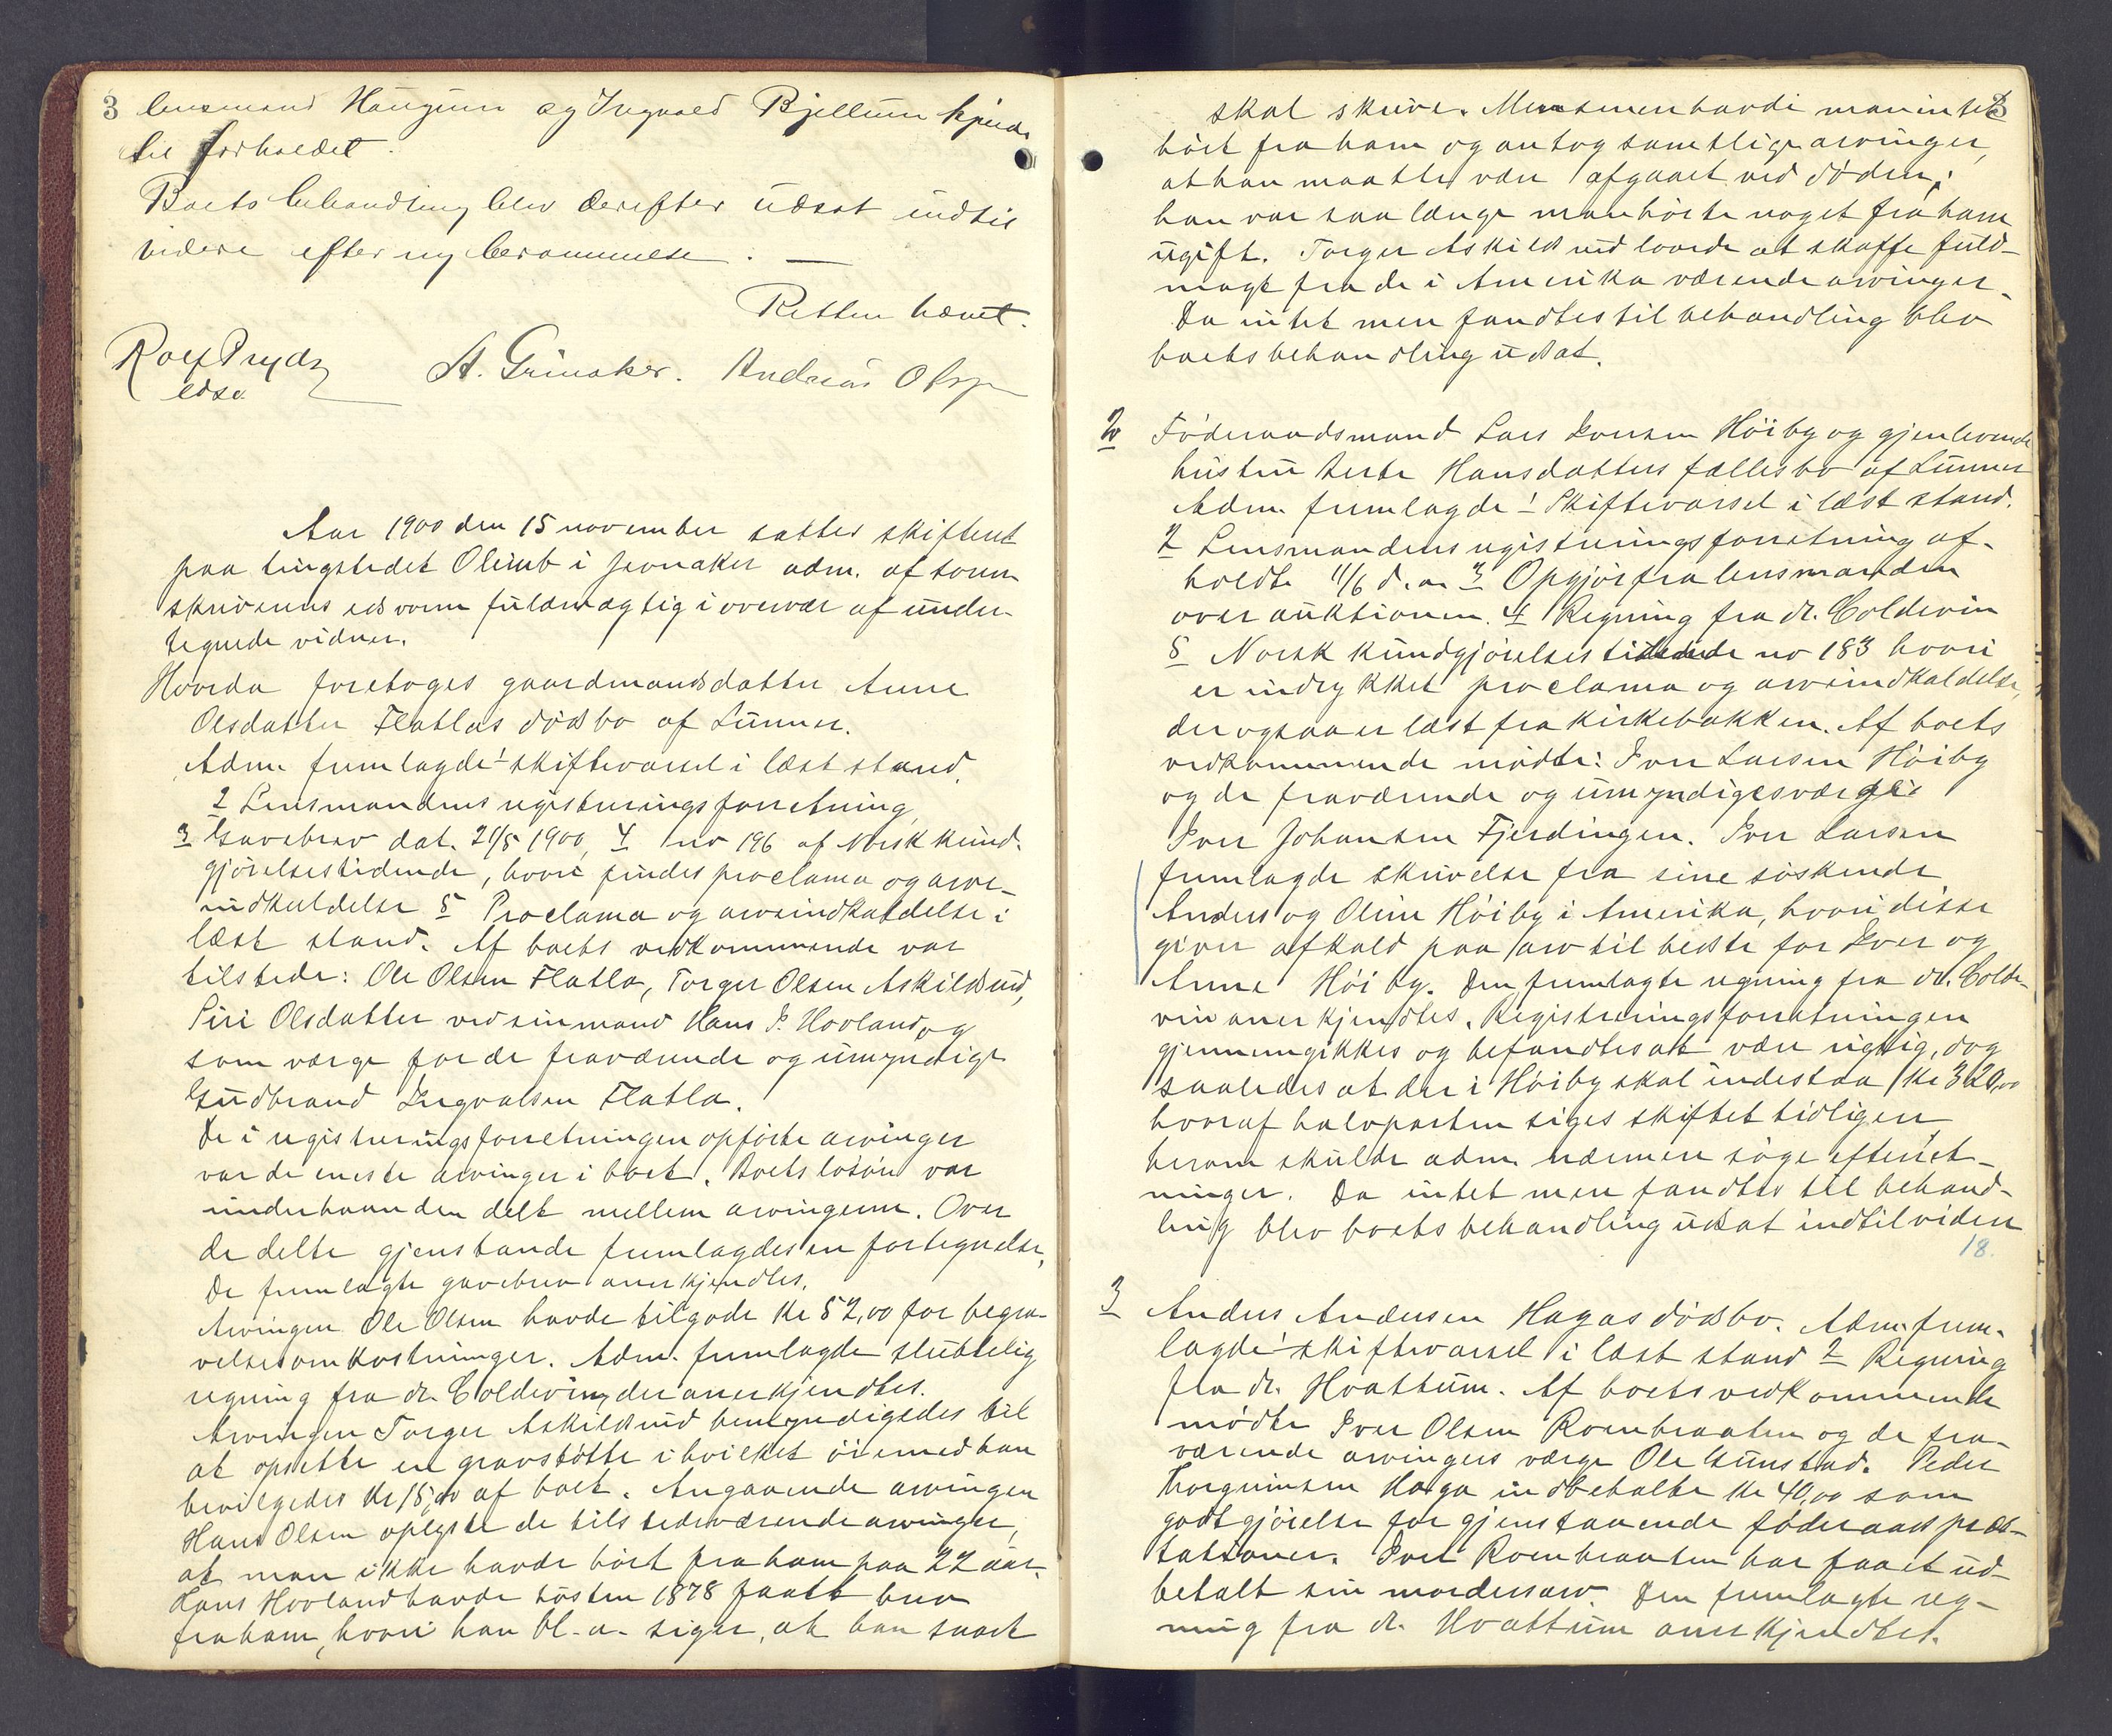 3 lensmand Haugum og Ingvald Bjellum kjendte
til forholdet.
Boets behandling blev derefter udsat indtil
videre efter ny berammelse. —
Retten hævet.
Rolf Prydz A. Grinaker. Andreas Olsen
edsv.
Aar 1900 den 15 november sattes skifteret
paa tingstedet Olimb i Jevnaker adm. af soren-
skriverens edsvorne fuldmægtig i overvær af under-
tegnede vidner.
Hvorda foretoges gaardmandsdatter Anne
Olsdatter Flatlas dødsbo af Lunner.
Adm. fremlagde 1 skiftevarsel i læst stand,
2 Lensmandens registreringsforretning,
3 Gavebrev dat. 21/5 1900, 4 no 196 af Norsk kund-
gjørelsestidende, hvori findes proclama og arve-
indkaldelse 5 Proclama og arveindkaldelse i
læst stand. Af boets vedkommende var
tilstede: Ole Olsen Flatla, Torger Olsen Askildsrud,
Siri Olsdatter ved sin mand Hans P. Hovland og
som værge for de fraværende og umyndige
Gudbrand Ingvalsen Flatla.
De i registreringsforretningen opførte arvinger
var de eneste arvinger i boet. Boets løsøre var
underhaanden delt mellem arvingerne. Over
de delte gjenstande fremlagdes en fortegnelse,
De fremlagte gavebrev anerkjendtes.
Arvingen Ole Olsen havde tilgode Kr 52,00 for begra-
velsesomkostninger. Adm. fremlagde sluttelig
regning fra dr. Coldevin, der anerkjendtes.
Arvingen Torger Askildsrud bemyndigedes til
at opsætte en gravstøtte i hvilket øiemed han
bevilgedes Kr 15,00 af boet. Angaaende arvingen
Hans Olsen oplyste de tilstedeværende arvinger,
at man ikke havde hørt fra ham paa 22 aar.
Hans Hovland havde høsten 1878 faaet brev
fra ham, hvori han bl. a. siger, at han snart
3
skal skrive. Men senere havde man intet
hørt fra ham og antog samtlige arvinger,
at han maatte være afgaaet ved døden;
han var saa længe man hørte noget fra ham
ugift. Torger Askildsrud lovede at skaffe fuld-
magt fra de i Amerika værende arvinger.
Da intet mere fandtes til behandling blev
boets behandling udsat.
2 Føderaadsmand Lars Iversen Høiby og gjenlevende
hustru Berte Hansdatters fællesbo af Lunner
Adm. fremlagde 1 Skiftevarsel i læst stand.
2 Lensmandens registreringsforretning af-
holdt 11/6 d. a. 3 Opgjør fra lensmanden
over auktionen. 4 Regning fra dr. Coldevin
5 Norsk kundgjørelsestidende no 183 hvori
er indrykket proclama og arveindkaldelse,
der ogsaa er læst fra kirkebakken. Af boets
vedkommende mødte: Iver Larsen Høiby
og de fraværende og umyndiges værge
Iver Johansen Fjerdingen. Iver Larsen
fremlagde skrivelse fra sine søskende
Anders og Oline Høiby i Amerika, hvori disse
giver afkald paa arv til bedste for Iver og
Anne Høiby. Den fremlagte regning fra dr. Colde-
vin anerkjendtes. Registreringsforretningen
gjennemgikkes og befandtes at være rigtig, dog
saaledes at der i Høiby skal indestaa Kr 320,00
hvoraf halvparten siges skiftet tidligere,
herom skulde adm. nærmere søge efterret-
ninger. Da intet mere fandtes til behand-
ling blev boets behandling udsat indtil videre
18.
3 Anders Andersen Hagas dødsbo. Adm. frem-
lagde 1 skiftevarsel i læst stand 2 Regning
fra dr. Hvattum. Af boets vedkommende
mødte Iver Olsen Roenbraaten og de fra-
værende arvingers værge Ole Gunstad. Peder
Thorgrimsen Haga indbetalte Kr 40,00 som
godtgjørelse for gjenstaaende føderaadspræs-
tationer. Iver Roenbraaten har faaet ud-
betalt sin mordersarv. Den fremlagte reg-
ning fra dr. Hvattum anerkjendtes.